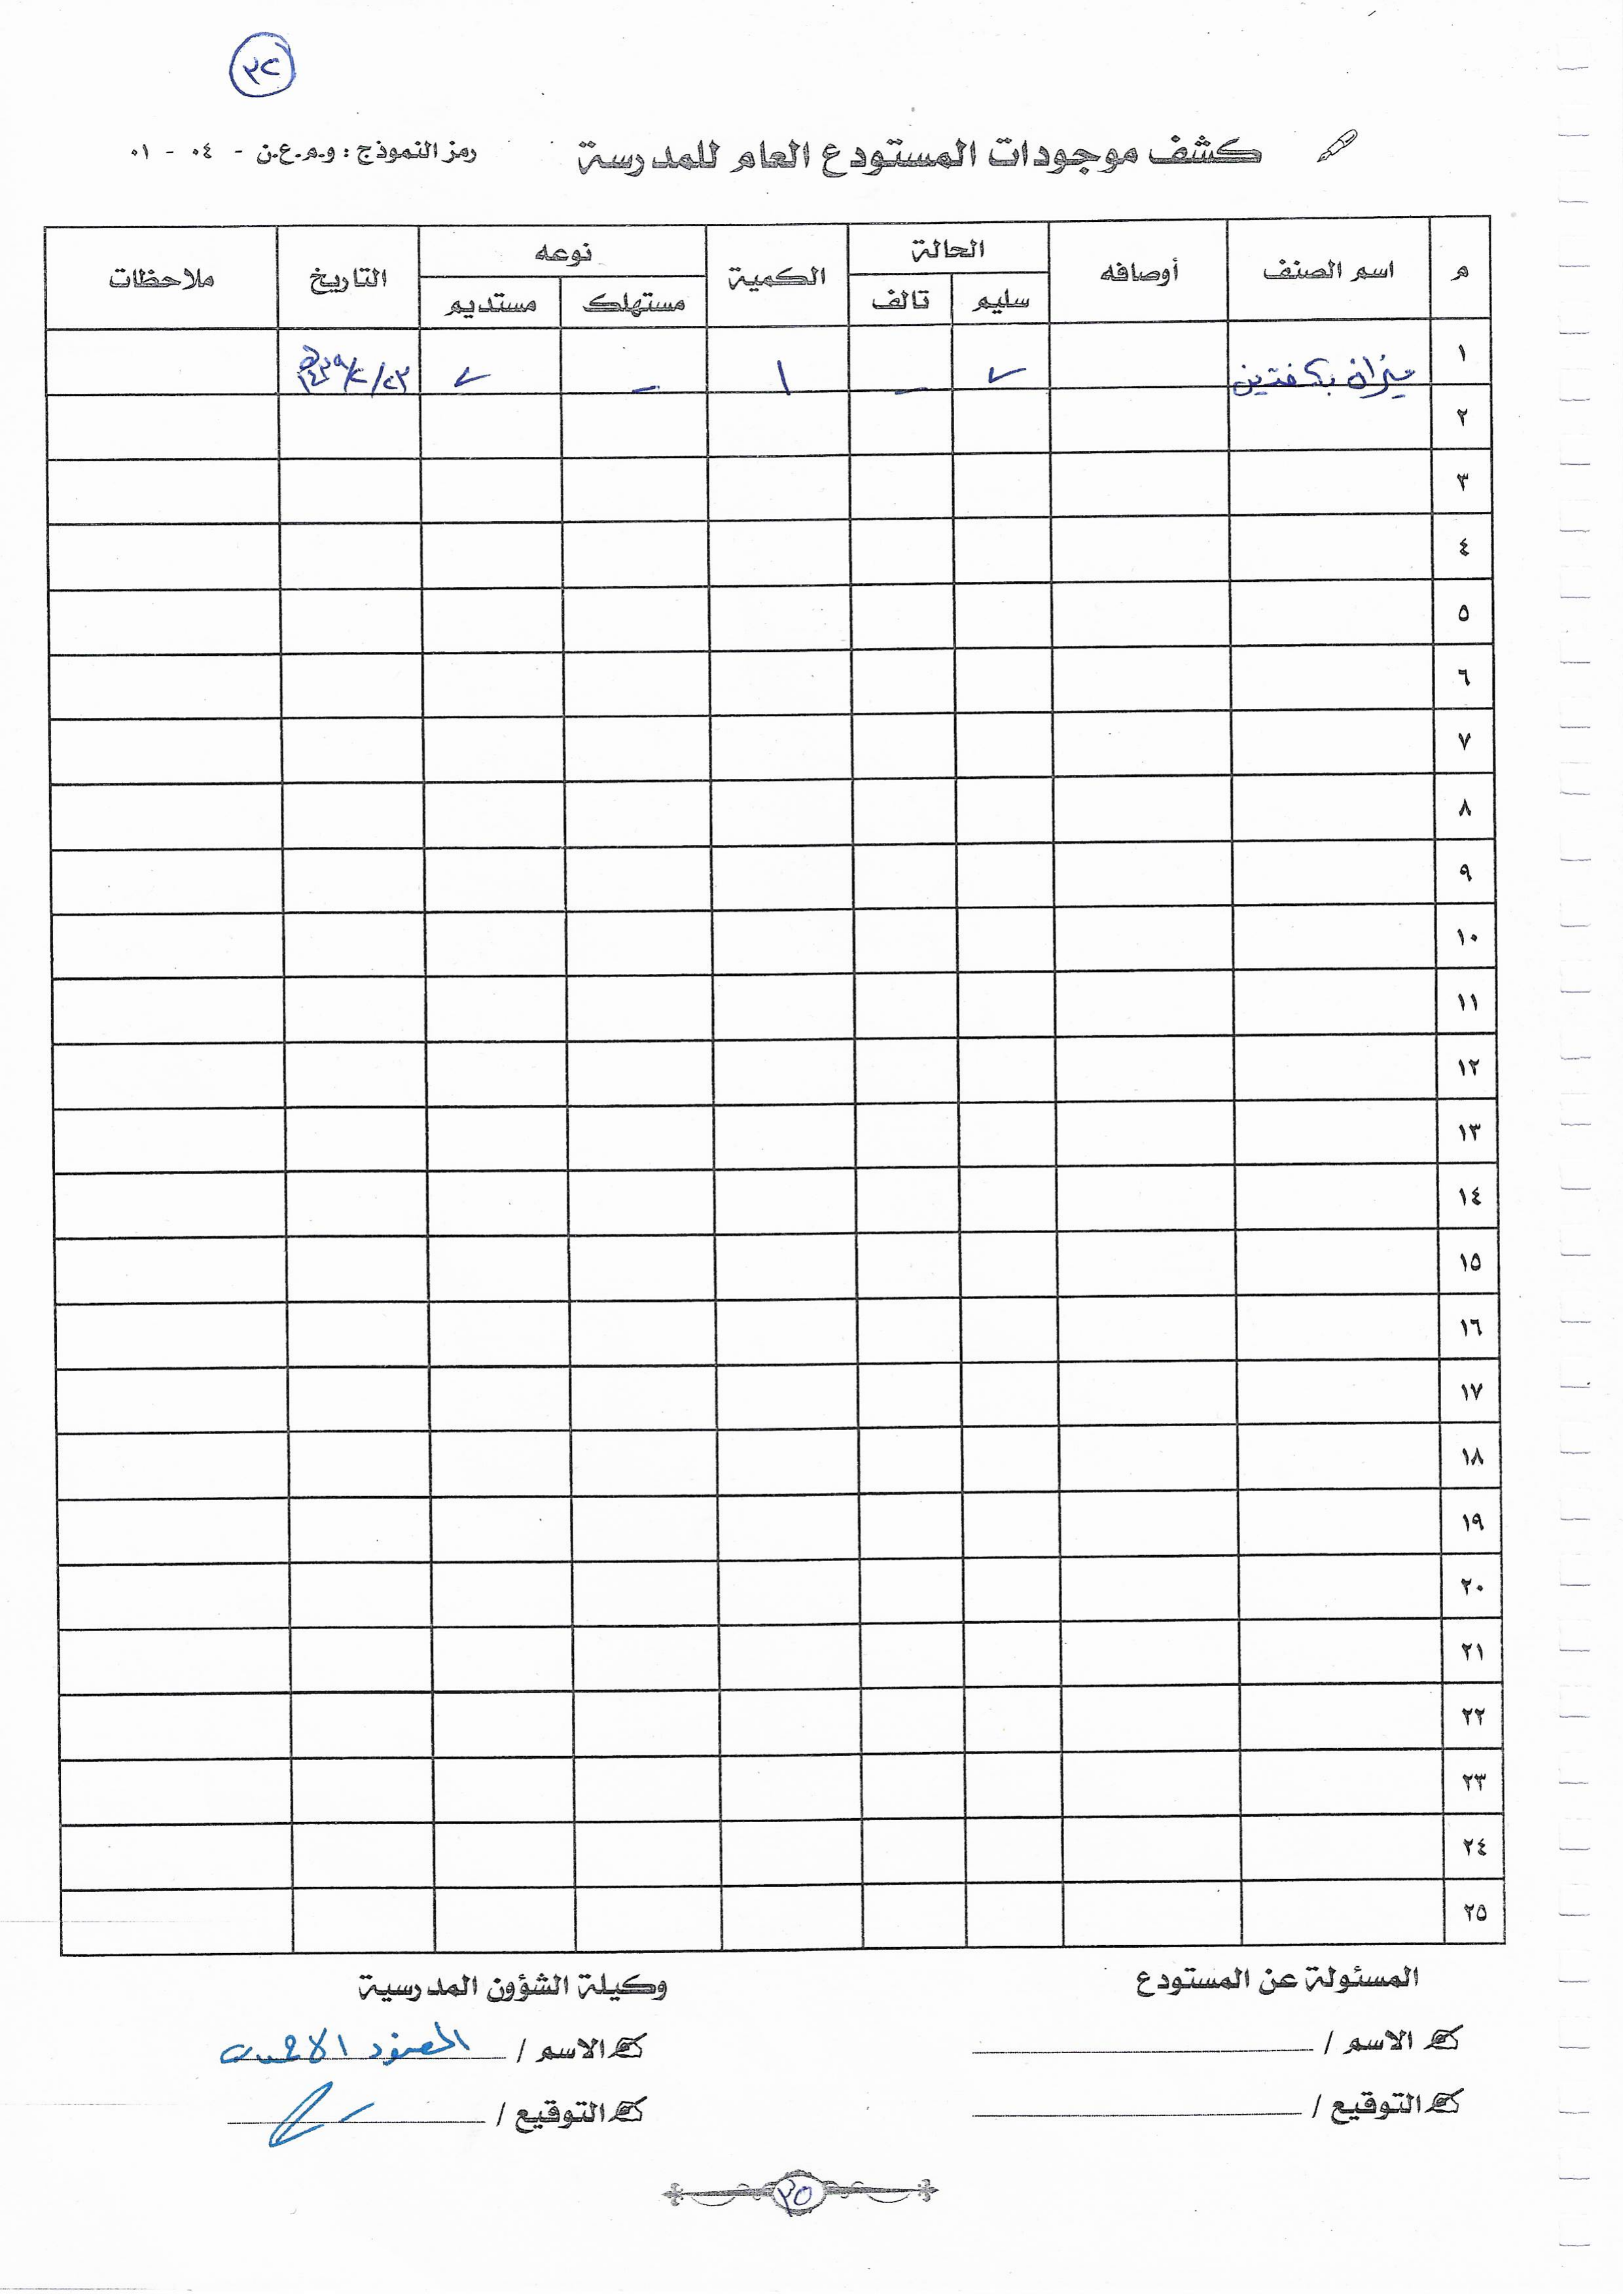 ٣٢
كشف موجودات المستودع العام للمدرسة
رمز النموذج : و.م.ع.ن - ٠٤ - ٠١
م اسم الصنف أوصافه الحالة الكمية نوعه التاريخ ملاحظات
سليم تالف مستهلك مستديم
١ ميزان بكفتين ✓ - ١ - ✓ ٢٣/٢/١٤٣٩هـ
٢
٣
٤
٥
٦
٧
٨
٩
١٠
١١
١٢
١٣
١٤
١٥
١٦
١٧
١٨
١٩
٢٠
٢١
٢٢
٢٣
٢٤
٢٥
المسئولة عن المستودع
الاسم /
التوقيع /
وكيلة الشؤون المدرسية
الاسم /
التوقيع /
٣٥